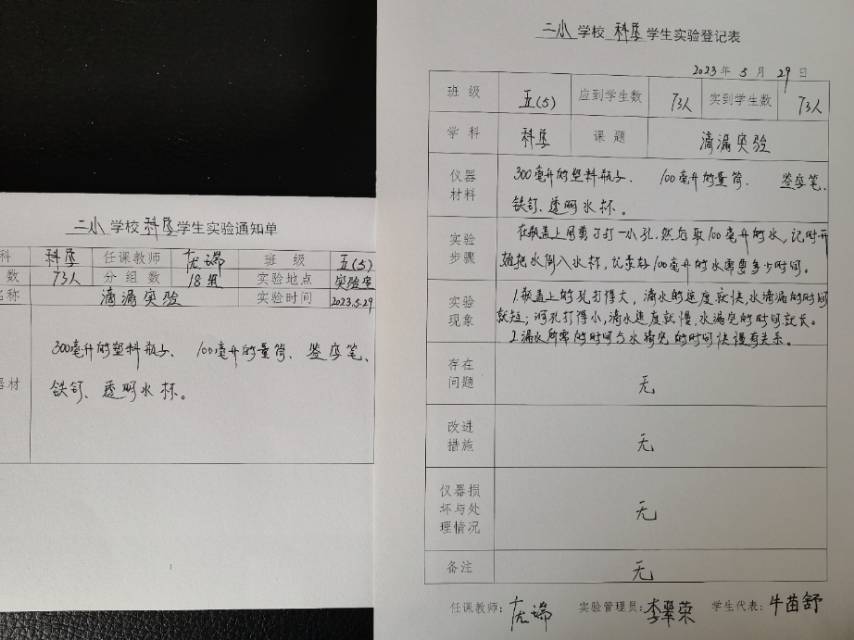 二小学校科学学生实验通知单
科 科学 任课教师 班级 五(5)
数 73人 分组数 18组 实验地点 实验室
名称 滴漏实验 实验时间 2023.5.29
器材
300毫升的塑料瓶子、100毫升的量筒、签字笔、
铁钉、透明水杯。
二小学校科学学生实验登记表
2023年5月29日
班级 五(5) 应到学生数 73人 实到学生数 73人
学科 科学 课题 滴漏实验
仪器材料
300毫升的塑料瓶子、100毫升的量筒、签字笔、
铁钉、透明水杯。
实验步骤
在瓶盖上用剪刀打一小孔,然后取100毫升的水,记时开
始把水倒入水杯,记录好100毫升的水需要多少时间。
实验现象
1.瓶盖上的孔打得大,滴水的速度就快,水滴漏的时间
就短;孔打得小,滴水速度就慢,水漏完的时间就长。
2.漏水所需的时间与水滴完的时间快慢有关系。
存在问题 无
改进措施 无
仪器损坏与处理情况 无
备注 无
任课教师: 实验管理员:李翠荣 学生代表:牛苗舒